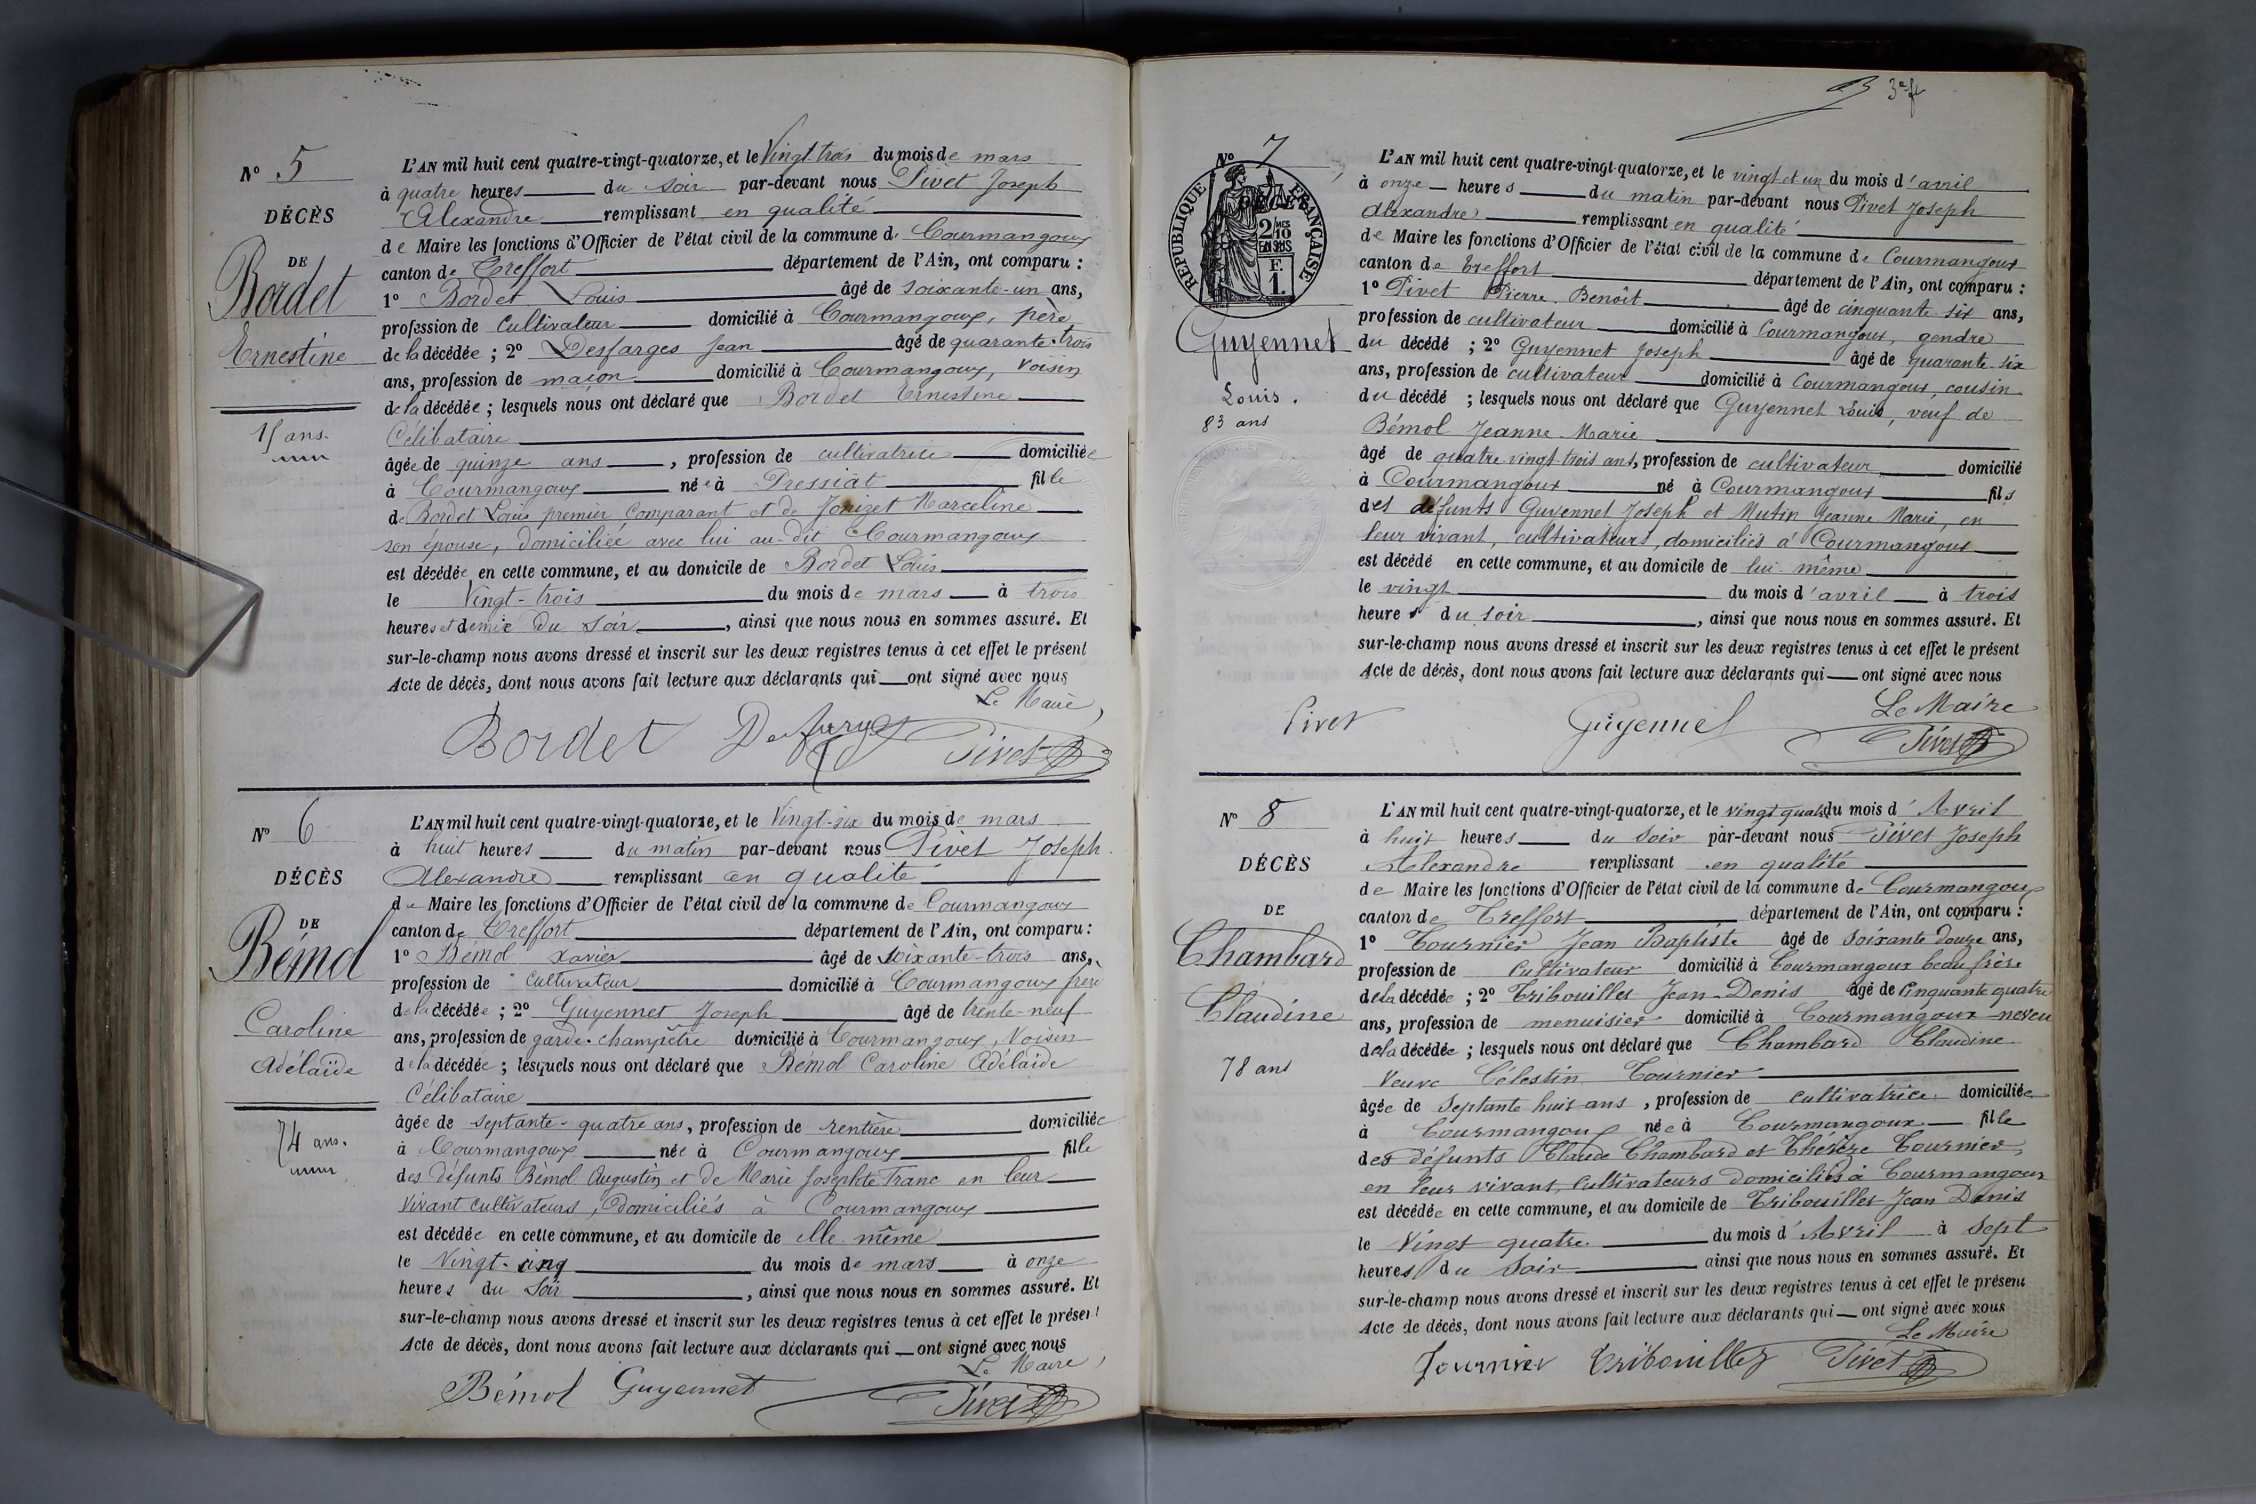 N° 5
DÉCÈS
DE
Bordet
Ernestine
15 ans.
L'AN mil huit cent quatre-vingt-quatorze, et le Vingt-trois du mois de mars
à quatre heures du soir par-devant nous Pivet Joseph
Alexandre remplissant en qualité
de Maire les fonctions d'Officier de l'état civil de la commune de Courmangoux
canton de Treffort département de l'Ain, ont comparu :
1° Bordet Louis âgé de soixante-un ans,
profession de Cultivateur domicilié à Courmangoux, père
de la décédée ; 2° Desfarges Jean âgé de quarante-trois
ans, profession de maçon domicilié à Courmangoux, Voisin
de la décédée ; lesquels nous ont déclaré que Bordet Ernestine
Célibataire
âgée de quinze ans, profession de cultivatrice domiciliée
à Courmangoux née à Pressiat fille
de Bordet Louis premier Comparant et de Marceline
son épouse, domiciliée avec lui au-dit Courmangoux
est décédée en cette commune, et au domicile de Bordet Louis
le Vingt-trois du mois de mars à trois
heures et demie du soir, ainsi que nous nous en sommes assuré. Et
sur-le-champ nous avons dressé et inscrit sur les deux registres tenus à cet effet le présent
Acte de décès, dont nous avons fait lecture aux déclarants qui ont signé avec nous
Le Maire,
Bordet Desfarges Pivet
N° 6
DÉCÈS
DE
Bémol
Caroline
Adélaïde
74 ans.
L'AN mil huit cent quatre-vingt-quatorze, et le Vingt-six du mois de mars
à huit heures du matin par-devant nous Pivet Joseph
Alexandre remplissant en qualité
de Maire les fonctions d'Officier de l'état civil de la commune de Courmangoux
canton de Treffort département de l'Ain, ont comparu :
1° Bémol Xavier âgé de soixante-trois ans,
profession de Cultivateur domicilié à Courmangoux frère
de la décédée ; 2° Guyennet Joseph âgé de trente-neuf
ans, profession de garde-champêtre domicilié à Courmangoux, Voisin
de la décédée ; lesquels nous ont déclaré que Bémol Caroline Adélaïde
Célibataire
âgée de septante-quatre ans, profession de rentière domiciliée
à Courmangoux née à Courmangoux fille
des défunts Bémol Augustin et de Marie Josephte Franc en leur
vivant cultivateurs, domiciliés à Courmangoux
est décédée en cette commune, et au domicile de elle-même
le Vingt-cinq du mois de mars à onze
heures du soir, ainsi que nous nous en sommes assuré. Et
sur-le-champ nous avons dressé et inscrit sur les deux registres tenus à cet effet le présent
Acte de décès, dont nous avons fait lecture aux déclarants qui ont signé avec nous
Le Maire,
Bémol Guyennet Pivet
3e f
N° 7
RÉPUBLIQUE FRANÇAISE
2/10 EN SUS
F. 1.
Guyennet
Louis.
83 ans
L'AN mil huit cent quatre-vingt-quatorze, et le vingt et un du mois d'avril
à onze heures du matin par-devant nous Pivet Joseph
Alexandre remplissant en qualité
de Maire les fonctions d'Officier de l'état civil de la commune de Courmangoux
canton de Treffort département de l'Ain, ont comparu :
1° Pivet Pierre Benoît âgé de cinquante-six ans,
profession de cultivateur domicilié à Courmangoux, gendre
du décédé ; 2° Guyennet Joseph âgé de quarante-six
ans, profession de cultivateur domicilié à Courmangoux, cousin
du décédé ; lesquels nous ont déclaré que Guyennet Louis, veuf de
Bémol Jeanne Marie
âgé de quatre vingt-trois ans, profession de cultivateur domicilié
à Courmangoux né à Courmangoux fils
des défunts Guyennet Joseph et Mutin Jeanne Marie, en
leur vivant, cultivateurs, domiciliés à Courmangoux
est décédé en cette commune, et au domicile de lui-même
le vingt du mois d'avril à trois
heures du soir, ainsi que nous nous en sommes assuré. Et
sur-le-champ nous avons dressé et inscrit sur les deux registres tenus à cet effet le présent
Acte de décès, dont nous avons fait lecture aux déclarants qui ont signé avec nous
Le Maire
Pivet Guyennet Pivet
N° 8
DÉCÈS
DE
Chambard
Claudine
78 ans
L'AN mil huit cent quatre-vingt-quatorze, et le vingt quatre du mois d'Avril
à huit heures du soir par-devant nous Pivet Joseph
Alexandre remplissant en qualité
de Maire les fonctions d'Officier de l'état civil de la commune de Courmangoux
canton de Treffort département de l'Ain, ont comparu :
1° Tournier Jean Baptiste âgé de soixante douze ans,
profession de cultivateur domicilié à Courmangoux beau frère
de la décédée ; 2° Tribouillet Jean-Denis âgé de Cinquante quatre
ans, profession de menuisier domicilié à Courmangoux neveu
de la décédée ; lesquels nous ont déclaré que Chambard Claudine
Veuve Célestin Tournier
âgée de Septante huit ans, profession de cultivatrice domiciliée
à Courmangoux née à Courmangoux fille
des défunts Claude Chambard et Thérèze Tournier,
en leur vivant, Cultivateurs domiciliés à Courmangoux
est décédée en cette commune, et au domicile de Tribouillet Jean Denis
le Vingt quatre du mois d'Avril à Sept
heures du Soir ainsi que nous nous en sommes assuré. Et
sur-le-champ nous avons dressé et inscrit sur les deux registres tenus à cet effet le présent
Acte de décès, dont nous avons fait lecture aux déclarants qui ont signé avec nous
Le Maire
Tournier Tribouillet Pivet